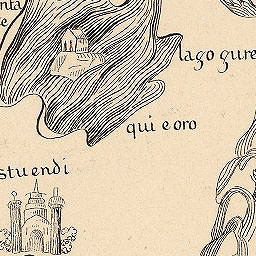 nta
te
lago gure
qui e oro
stuendi